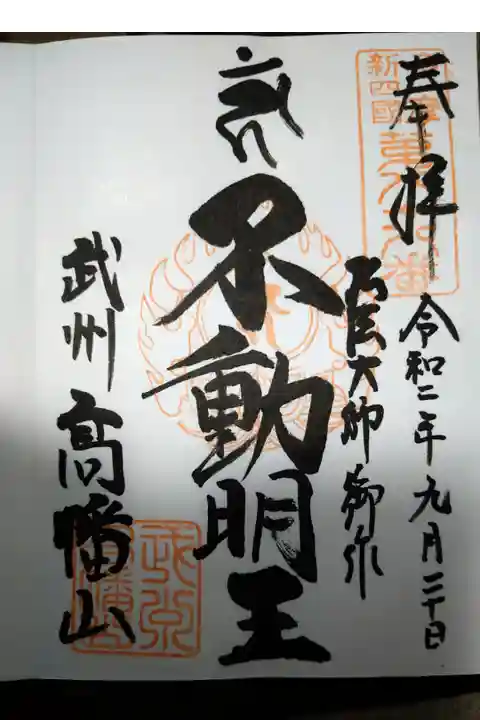 奉拝
令和二年九月二十日
弘法大師御作
不動明王
武州 高幡山